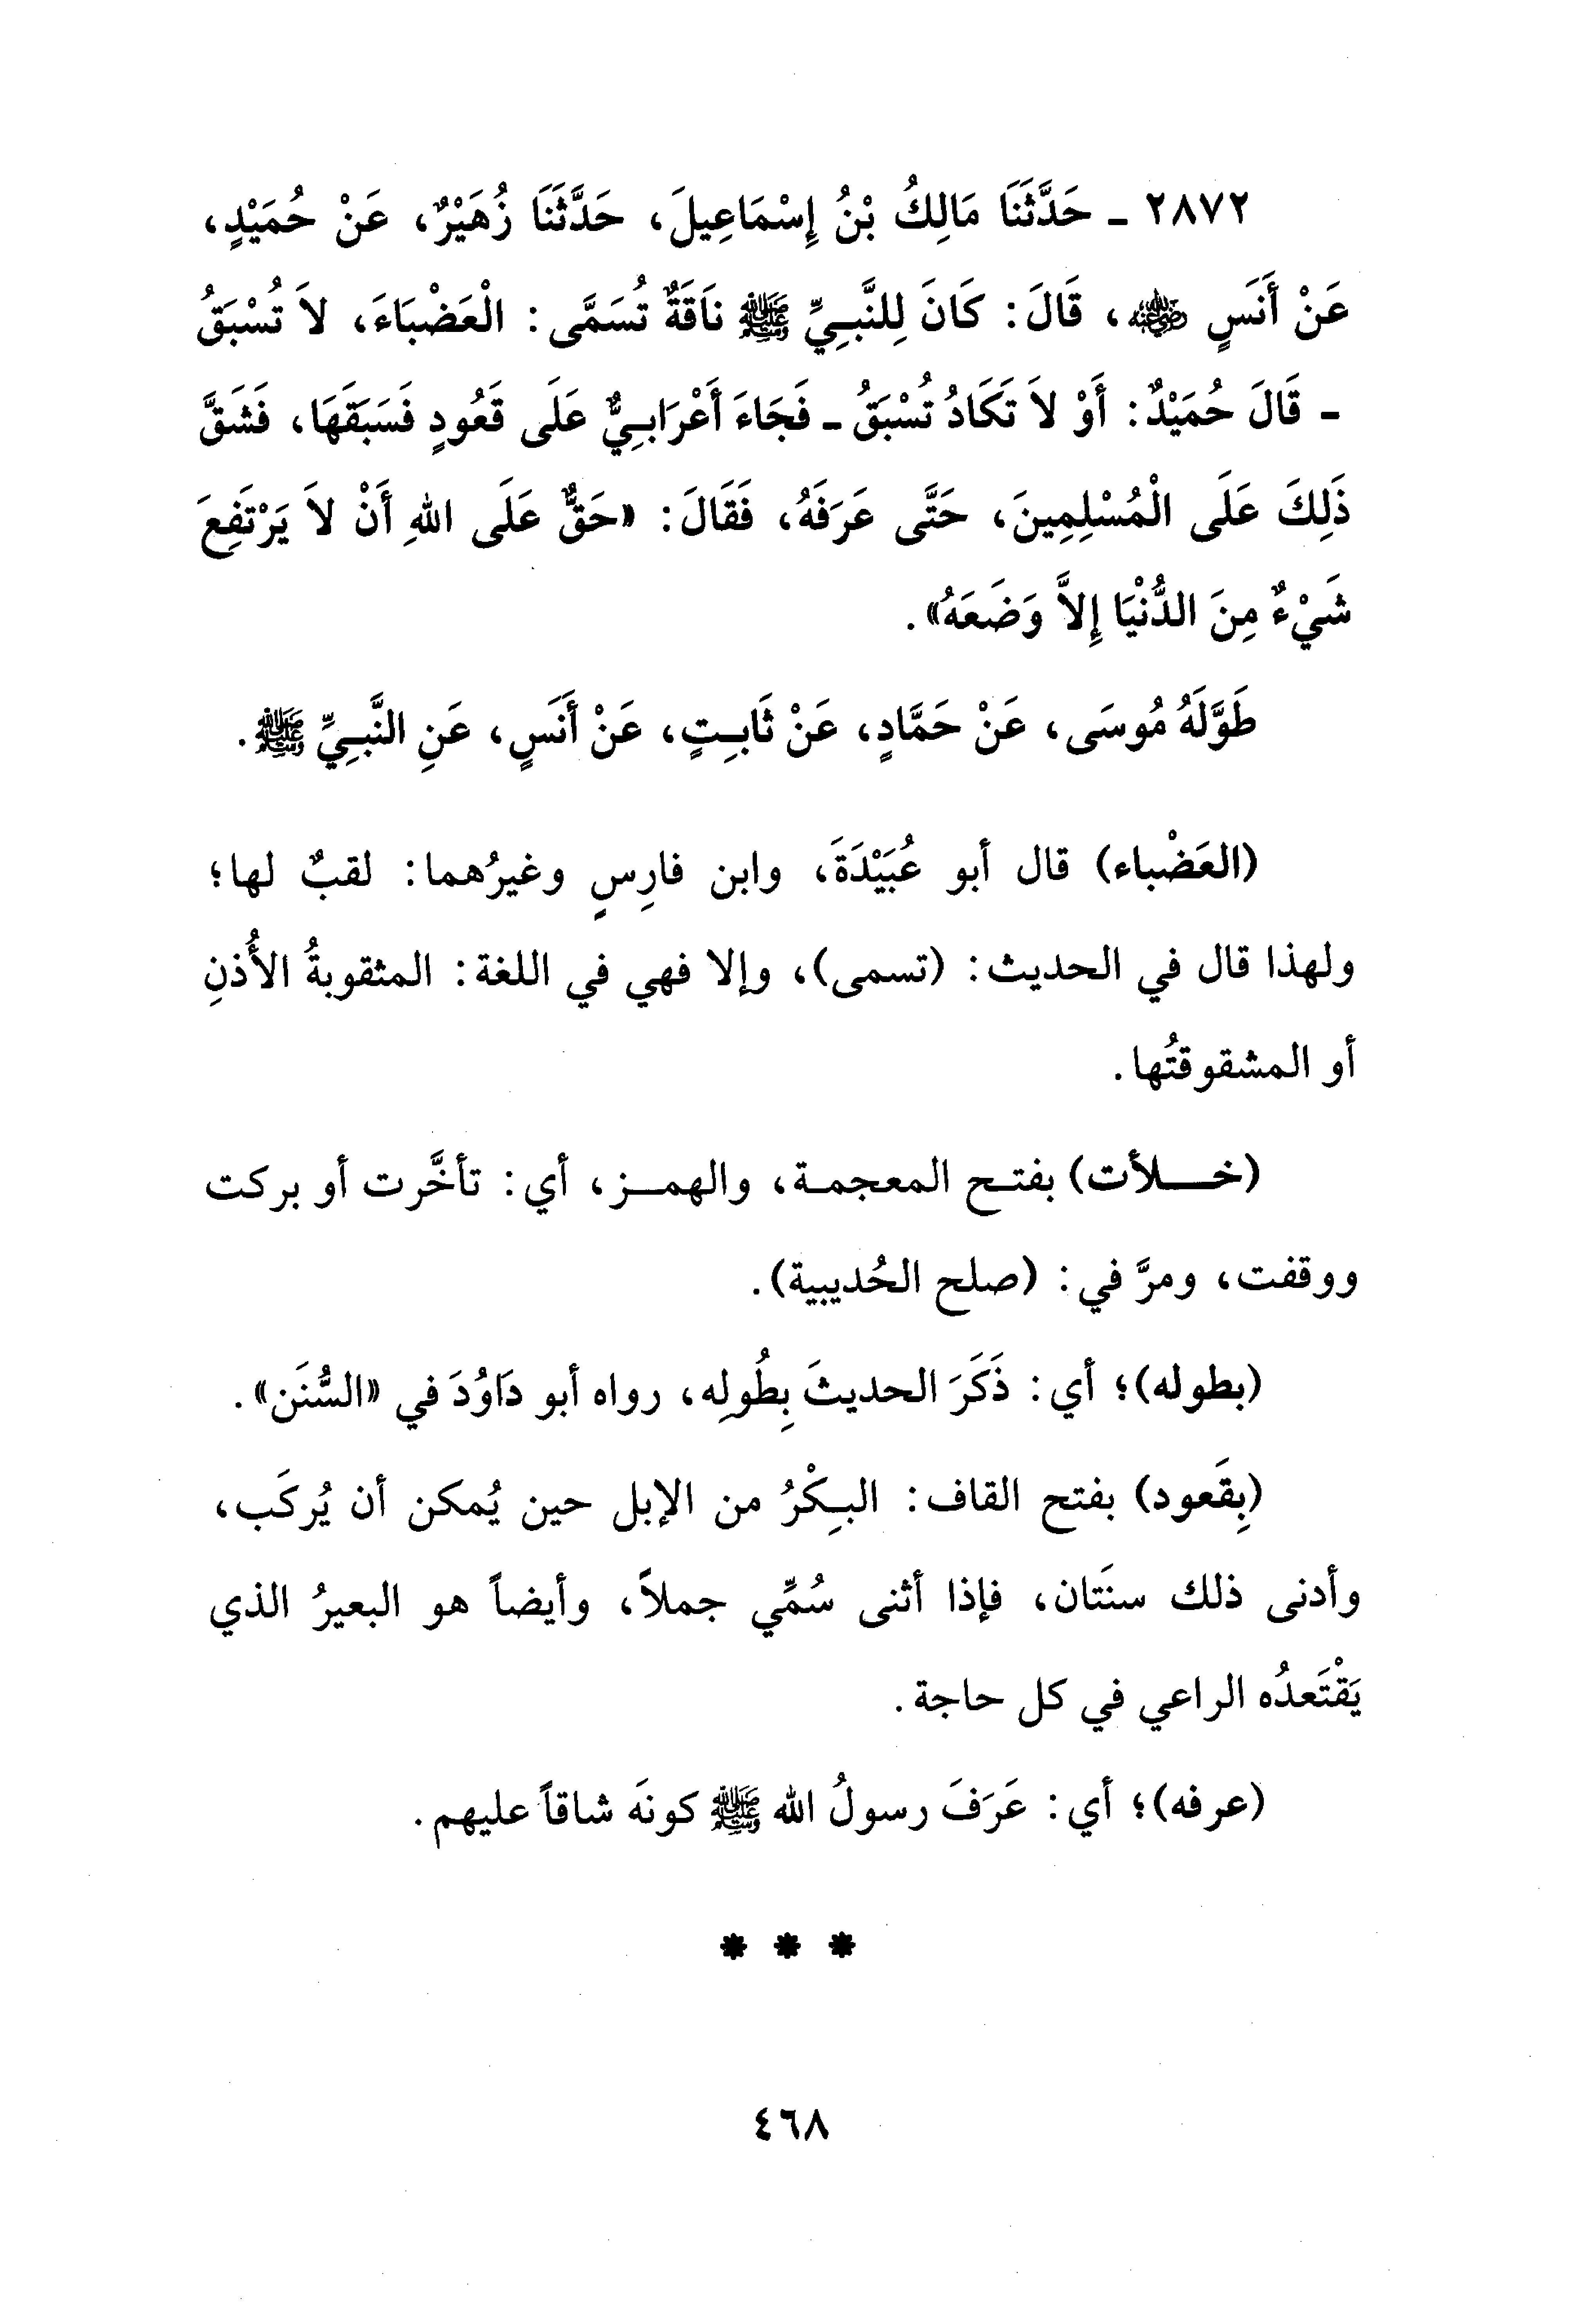 ٢٨٧٢ ـ حَدَّثَنَا مَالِكُ بْنُ إِسْمَاعِيلَ، حَدَّثَنَا زُهَيْرٌ، عَنْ حُمَيْدٍ،
عَنْ أَنَسٍ رضي الله عنه، قَالَ: كَانَ لِلنَّبِيِّ ﷺ نَاقَةٌ تُسَمَّى: الْعَضْبَاءَ، لاَ تُسْبَقُ
ـ قَالَ حُمَيْدٌ: أَوْ لاَ تَكَادُ تُسْبَقُ ـ فَجَاءَ أَعْرَابِيٌّ عَلَى قَعُودٍ فَسَبَقَهَا، فَشَقَّ
ذَلِكَ عَلَى الْمُسْلِمِينَ، حَتَّى عَرَفَهُ، فَقَالَ: «حَقٌّ عَلَى اللهِ أَنْ لاَ يَرْتَفِعَ
شَيْءٌ مِنَ الدُّنْيَا إِلاَّ وَضَعَهُ».
طَوَّلَهُ مُوسَى، عَنْ حَمَّادٍ، عَنْ ثَابِتٍ، عَنْ أَنَسٍ، عَنِ النَّبِيِّ ﷺ.
(العَضْباء) قال أبو عُبَيْدَةَ، وابن فارِسٍ وغيرُهما: لقبٌ لها؛
ولهذا قال في الحديث: (تسمى)، وإلا فهي في اللغة: المثقوبةُ الأُذنِ
أو المشقوقتُها.
(خلأت) بفتح المعجمة، والهمز، أي: تأخَّرت أو بركت
ووقفت، ومرَّ في: (صلح الحُديبية).
(بطوله)؛ أي: ذَكَرَ الحديثَ بِطُولِه، رواه أبو دَاوُدَ في «السُّنَن».
(بِقَعود) بفتح القاف: البِكْرُ من الإبل حين يُمكن أن يُركَب،
وأدنى ذلك سنَتان، فإذا أثنى سُمِّي جملاً، وأيضاً هو البعيرُ الذي
يَقْتَعدُه الراعي في كل حاجة.
(عرفه)؛ أي: عَرَفَ رسولُ الله ﷺ كونَه شاقاً عليهم.
* * *
٤٦٨